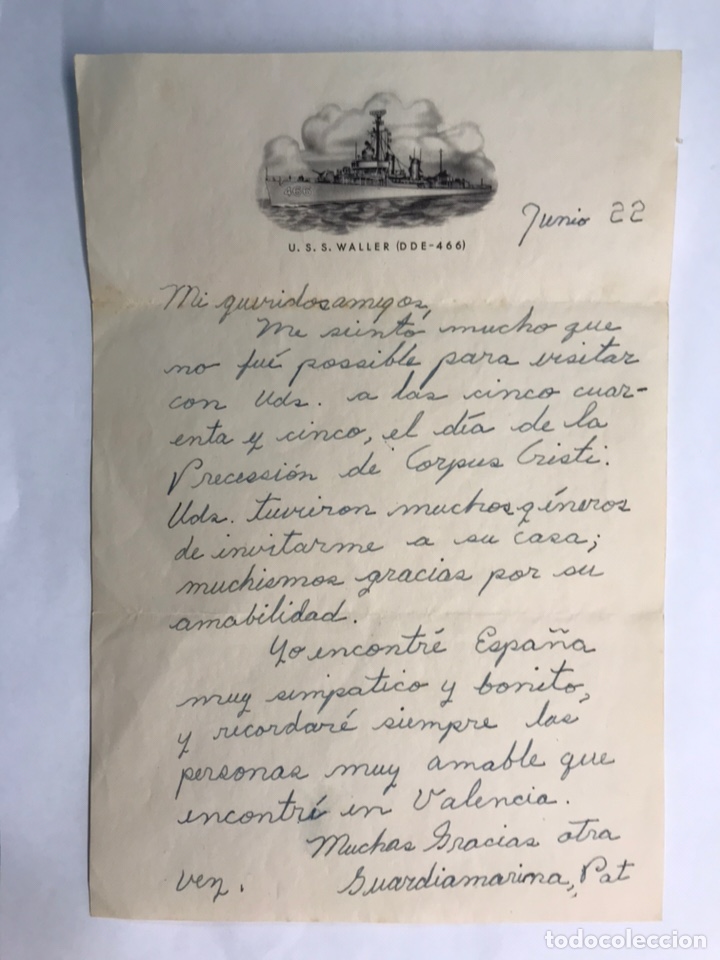 466
U. S. S. WALLER (DDE-466)
Junio 22
Mi queridos amigos,
Me siento mucho que
no fué possible para visitar
con Uds. a las cinco cuar-
enta y cinco, el día de la
Precessión de Corpus Cristi.
Uds. tuviron muchos géneros
de invitarme a su casa;
muchismos gracias por su
amabilidad.
Yo encontré España
muy simpatico y bonito,
y recordaré siempre las
personas muy amable que
encontré in Valencia.
Muchas Gracias otra
vez. Guardiamarina, Pat
todocoleccion
todocoleccion.net